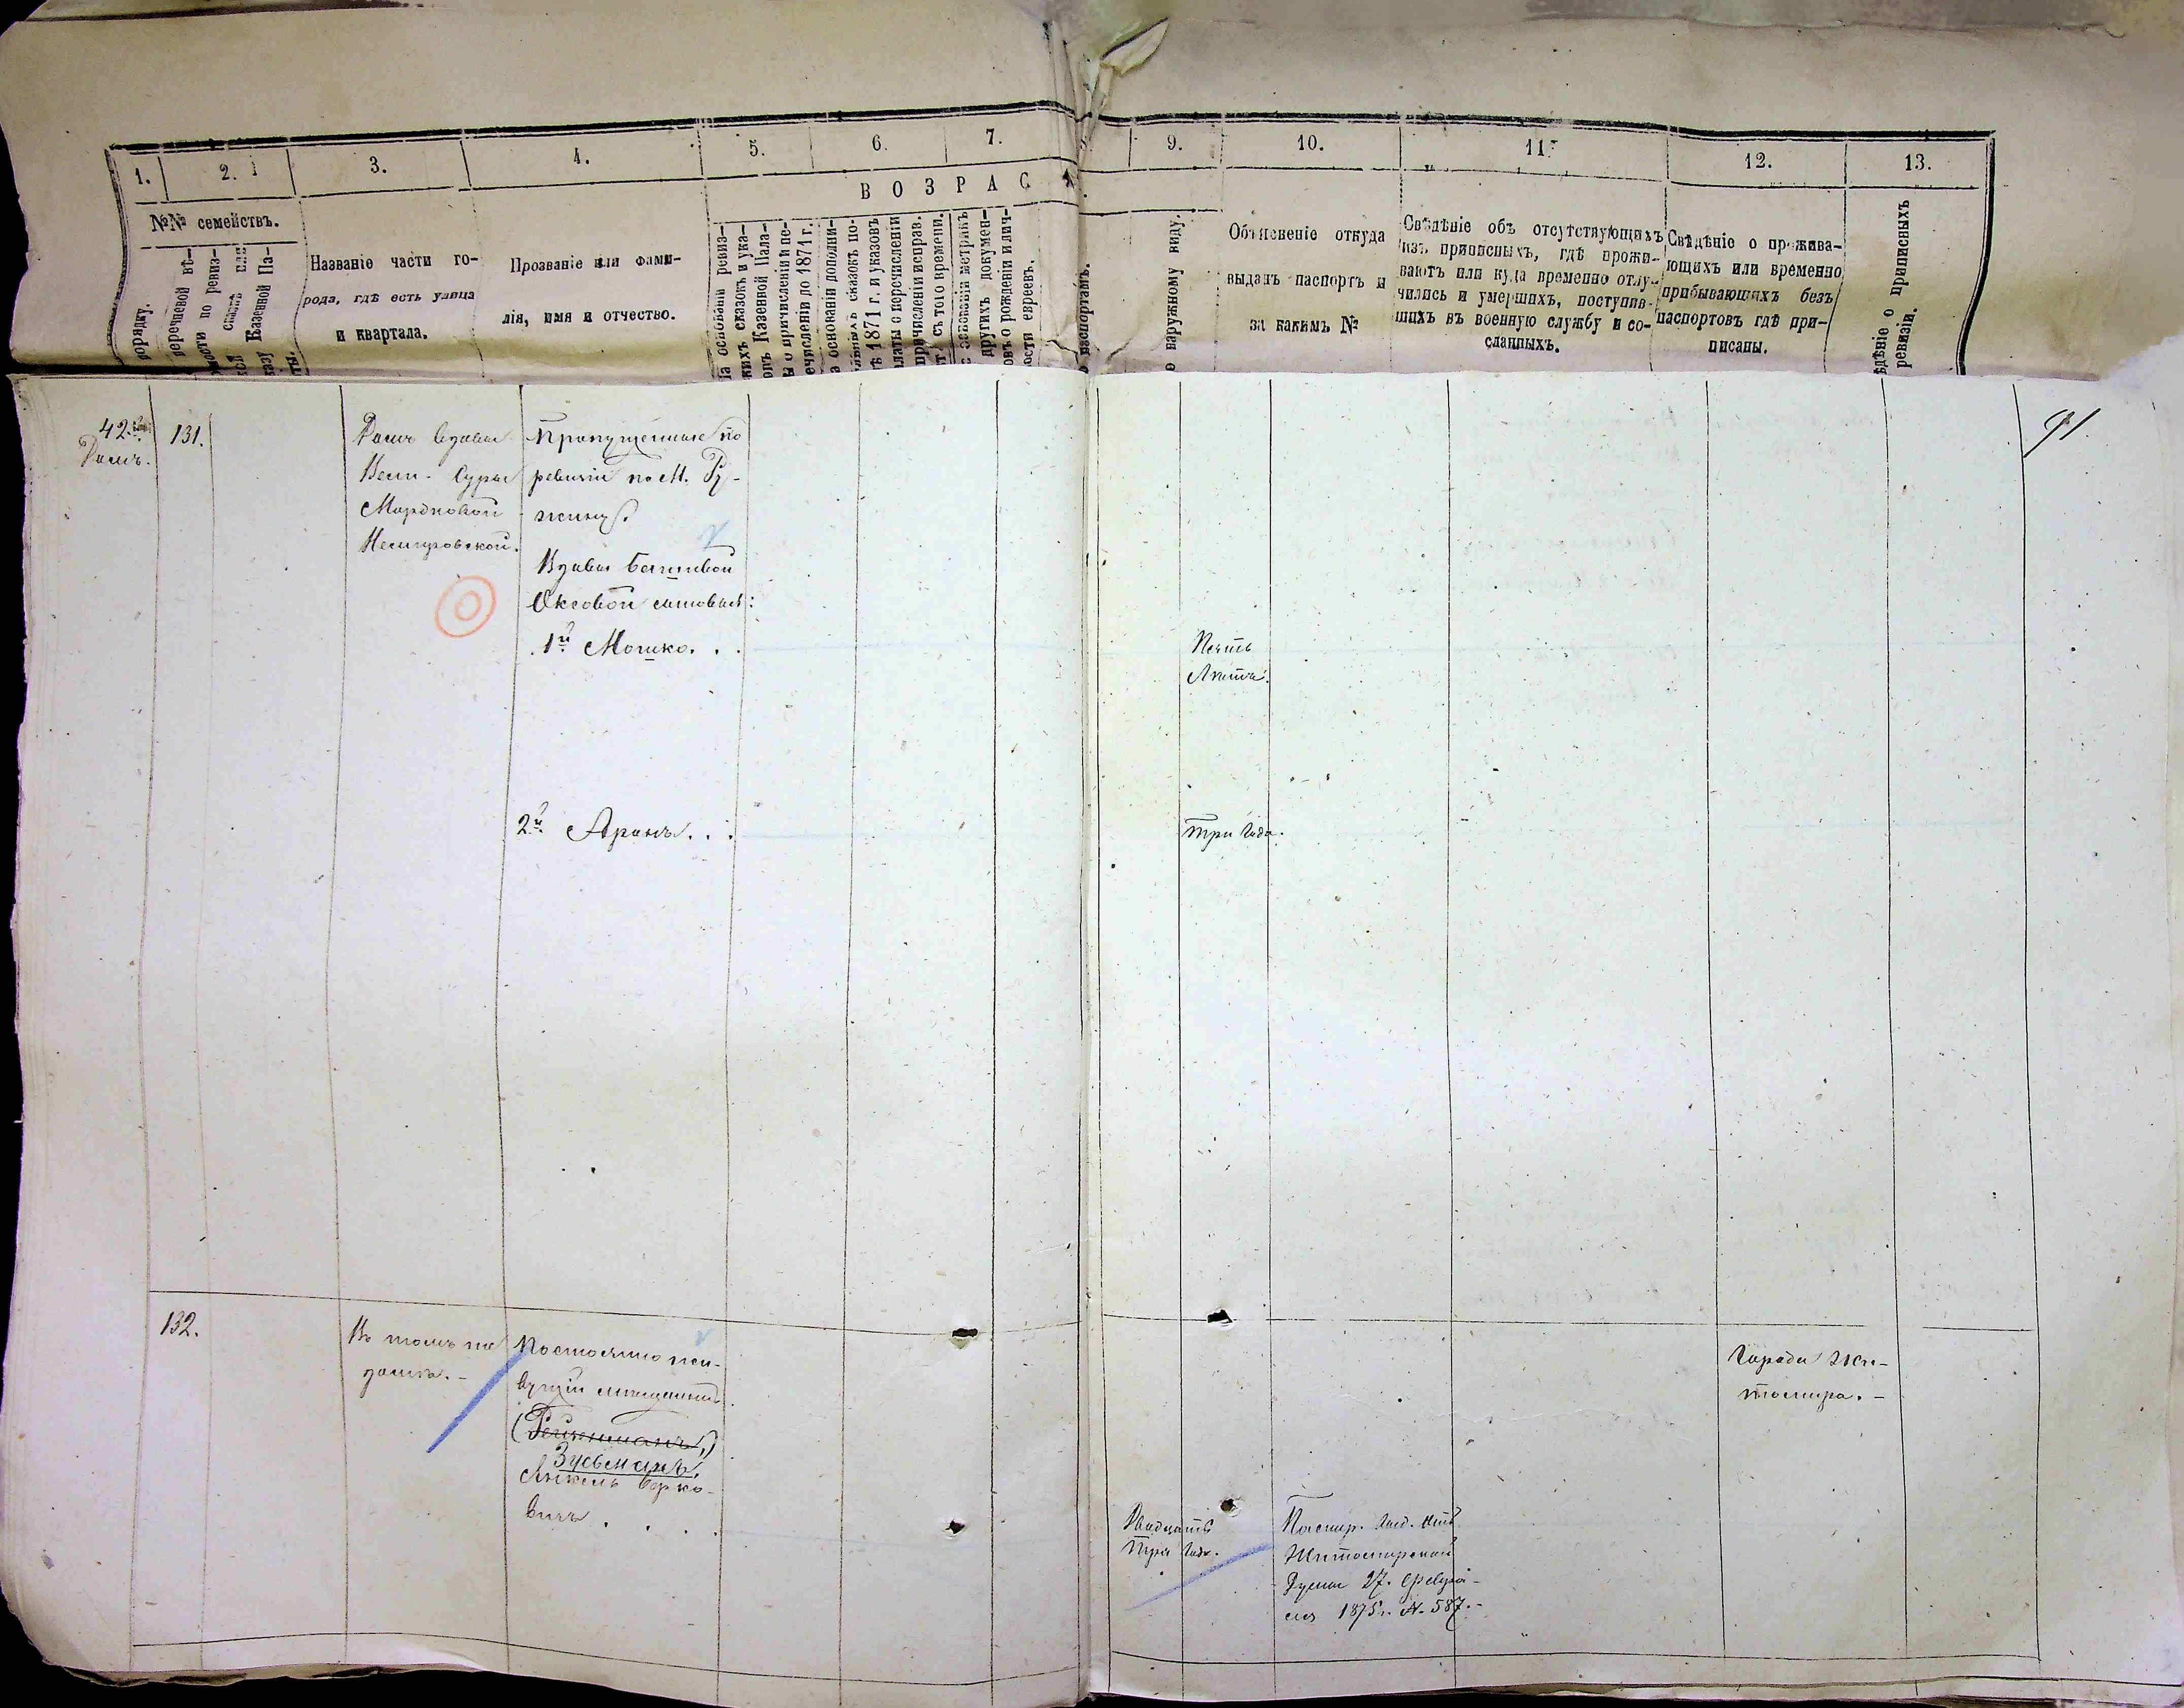 1.
2.
3.
4.
5.
6.
7.
9.
10.
11.
12.
13.
ВОЗРАС
№№ семействъ.
порядку.
перечневой вѣ-
мости по ревиз-
Казенной Па-
Названіе части го-
рода, гдѣ есть улица
и квартала.
Прозваніе или фами-
лія, имя и отчество.
основаніи ревиз-
кихъ сказокъ и ука-
Казенной Пала-
о причисленіи и пе-
ечисленіи до 1871 г.
основаніи дополни-
сказокъ по-
1871 г. и указовъ
латы о перечисленіи
причисленіи исправ.
съ того времени.
другихъ докумен-
овъ о рожденіи и лич-
ости евреевъ.
паспортамъ.
наружному виду.
Объясненіе откуда
выданъ паспортъ и
за какимъ №
Свѣдѣніе объ отсутствующихъ
изъ приписныхъ, гдѣ прожи-
ваютъ или куда временно отлу-
чились и умершихъ, поступив-
шихъ въ военную службу и со-
сланныхъ.
Свѣдѣніе о прожива-
ющихъ или временно
прибывающихъ безъ
паспортовъ гдѣ при-
писаны.
ѣдѣніе о приписныхъ
ревизіи.
42.й
Домъ.
131.
Домъ вдовы
Суры
Мордковой
Немировской.
Пропущенные по
ревизіи по М. Ру-
жину.
Вдовы
сыновья:
1й Мошко. . .
Пять
Лѣтъ.
2й Аронъ. . .
Три Года.
91.
132.
Въ томъ же
домѣ. -
Постоянно жи-
вущій мѣщанинъ
Зусьманъ,
Янкель Берко-
вичъ . . . .
Двадцать
Три Года.
Житомирской
Думы 27. Февра-
ля 1875 г. № 587. -
Города Жи-
томира. -